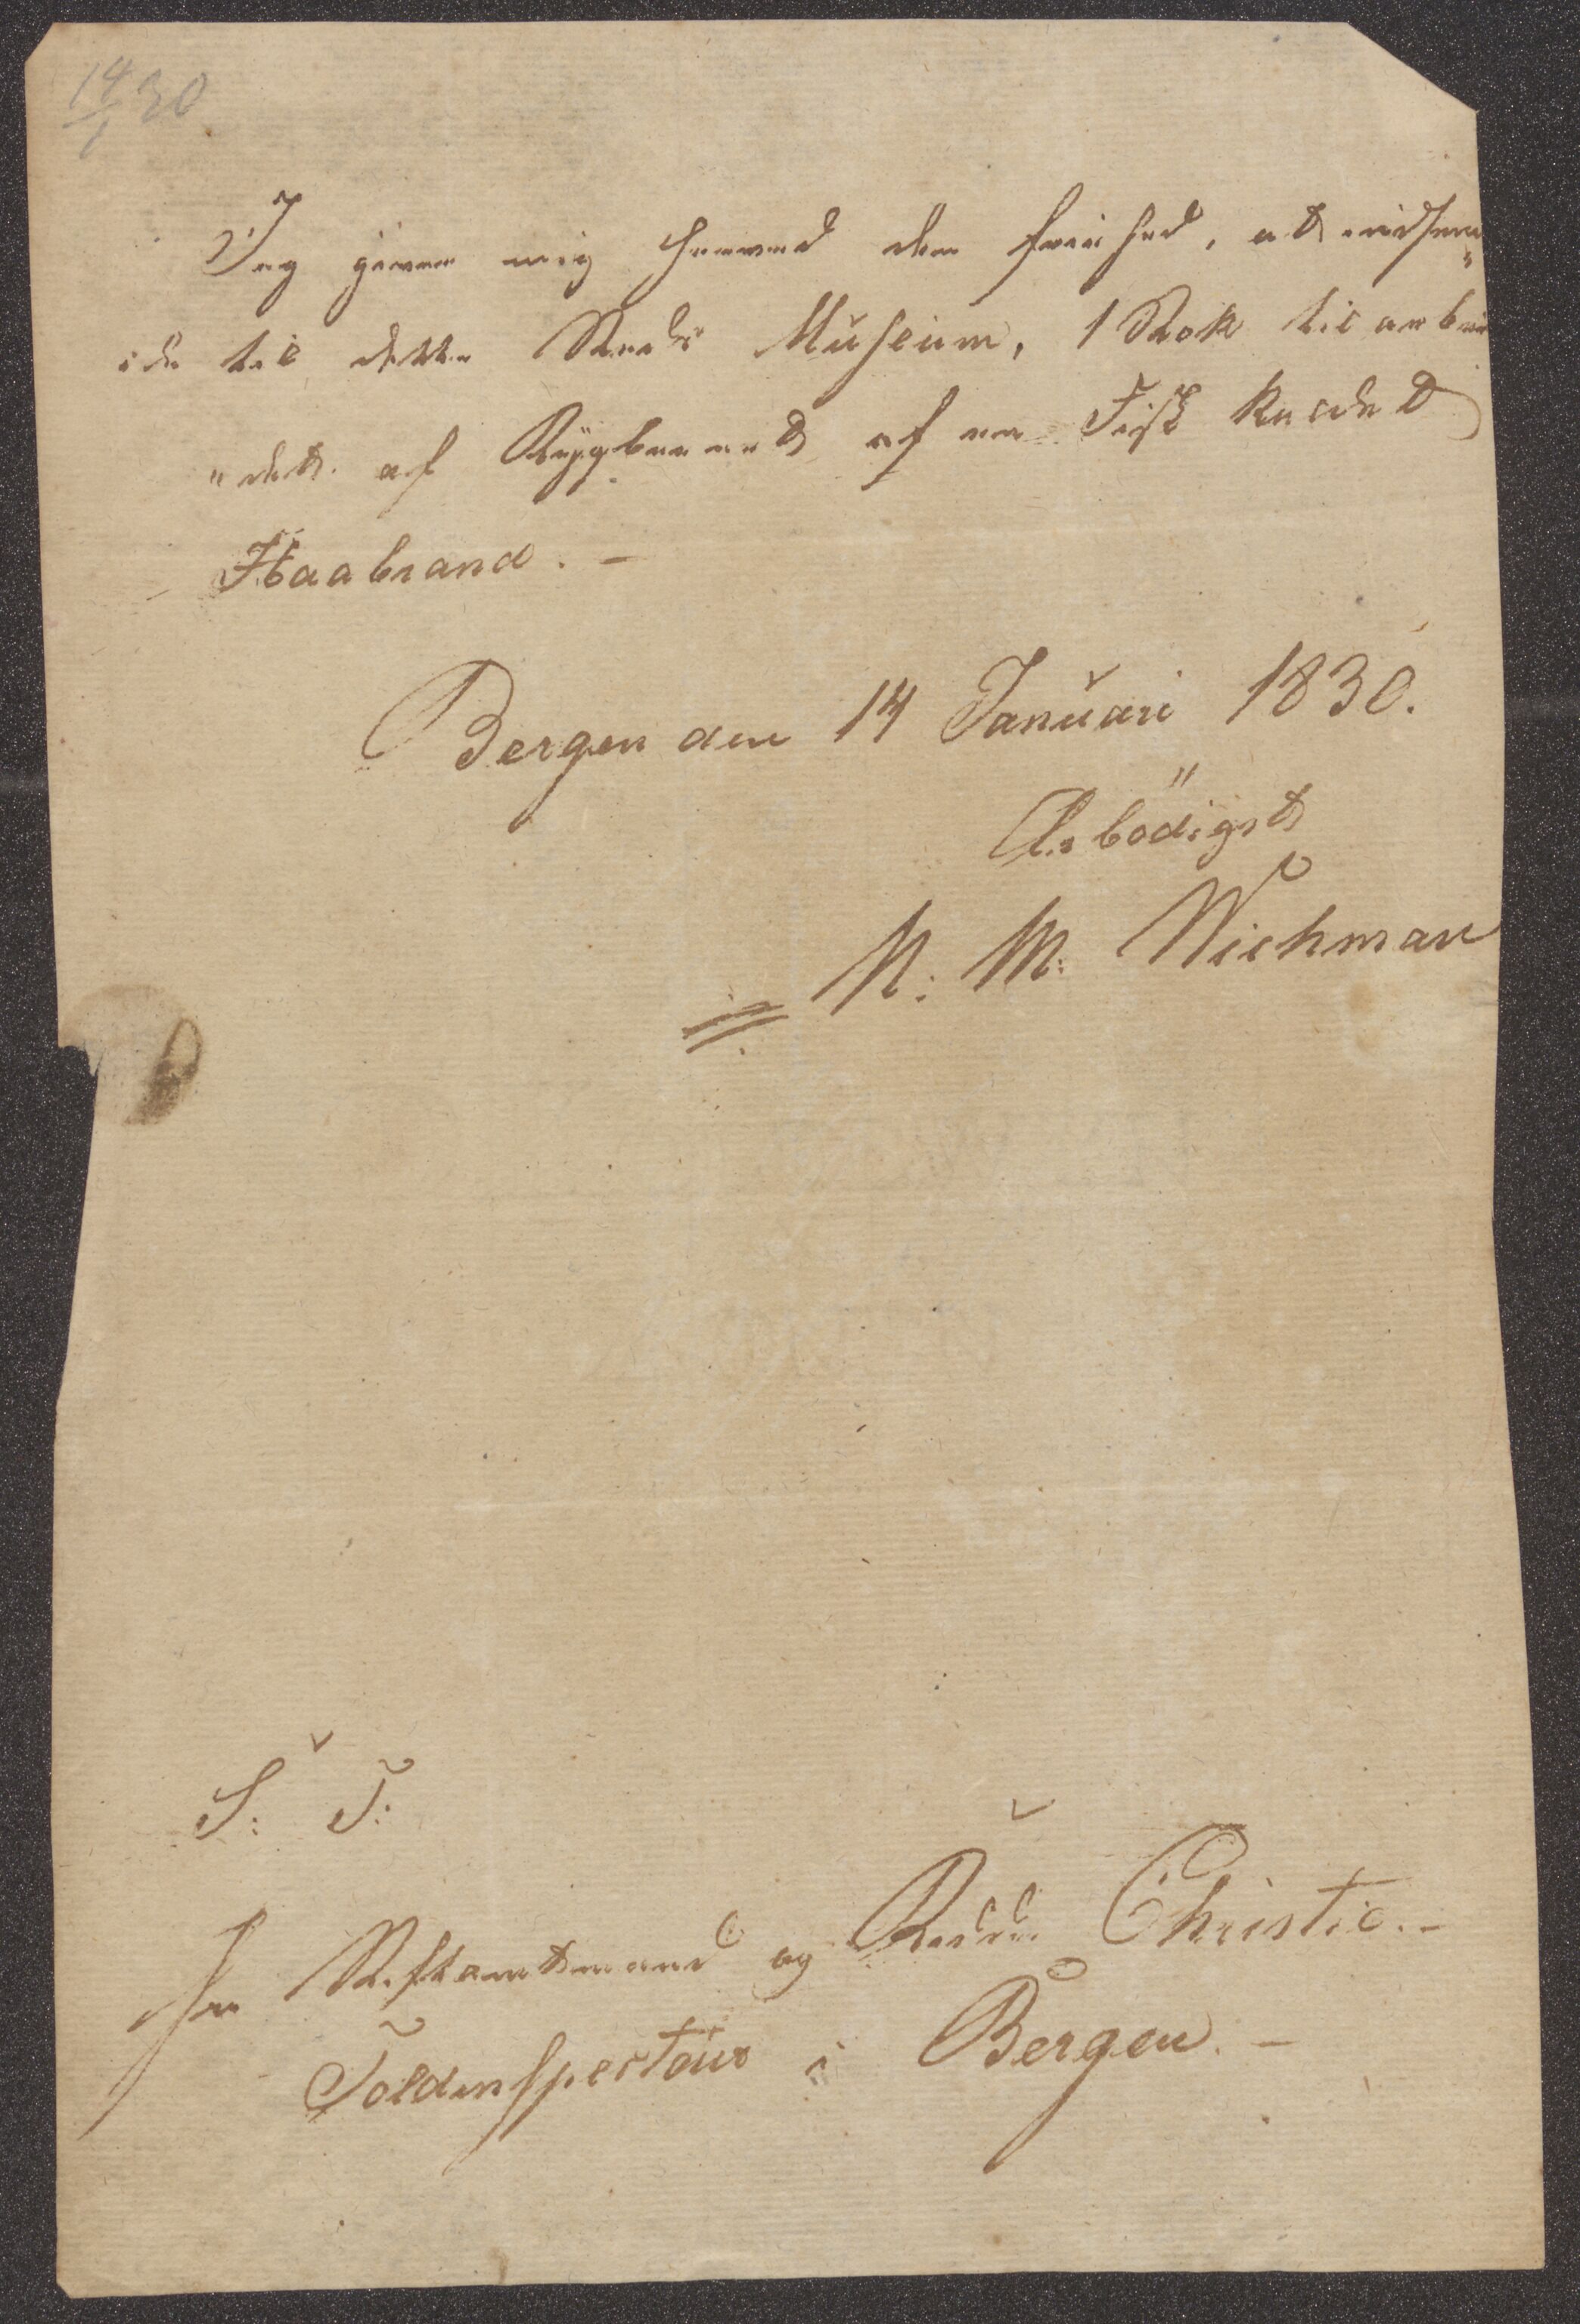 14/1 30
Jeg giver mig herved den friehed, at indsen„
de til dette Steds Museium, 1 Stok til arbei
„det af Rÿgbenet af en Fisk kaldet
Haabrand. –
Bergen den 14 Januari 1830.
Ærbödigst
N: M: Wichman
S: T:
Hr Stiftamtmand og Ridder Christie. –
Toldinspecteur i Bergen. –